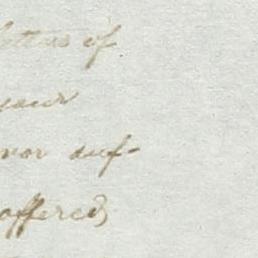 letters of
your
nor suf-
offered